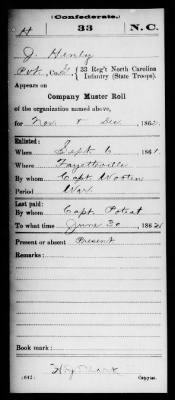 (Confederate.)
H 33 N.C.
J Henly
Pvt, Co. G, 33 Reg't North Carolina
Infantry (State Troops).
Appears on
Company Muster Roll
of the organization named above,
for Nov & Dec, 186
Enlisted:
When Sept 6, 1861
Where Fayetteville
By whom Capt Wooten
Period War
Last paid:
By whom Capt Poteat
To what time June 30, 1862
Present or absent Present
Remarks:
Book mark:
(642)
Copyist.